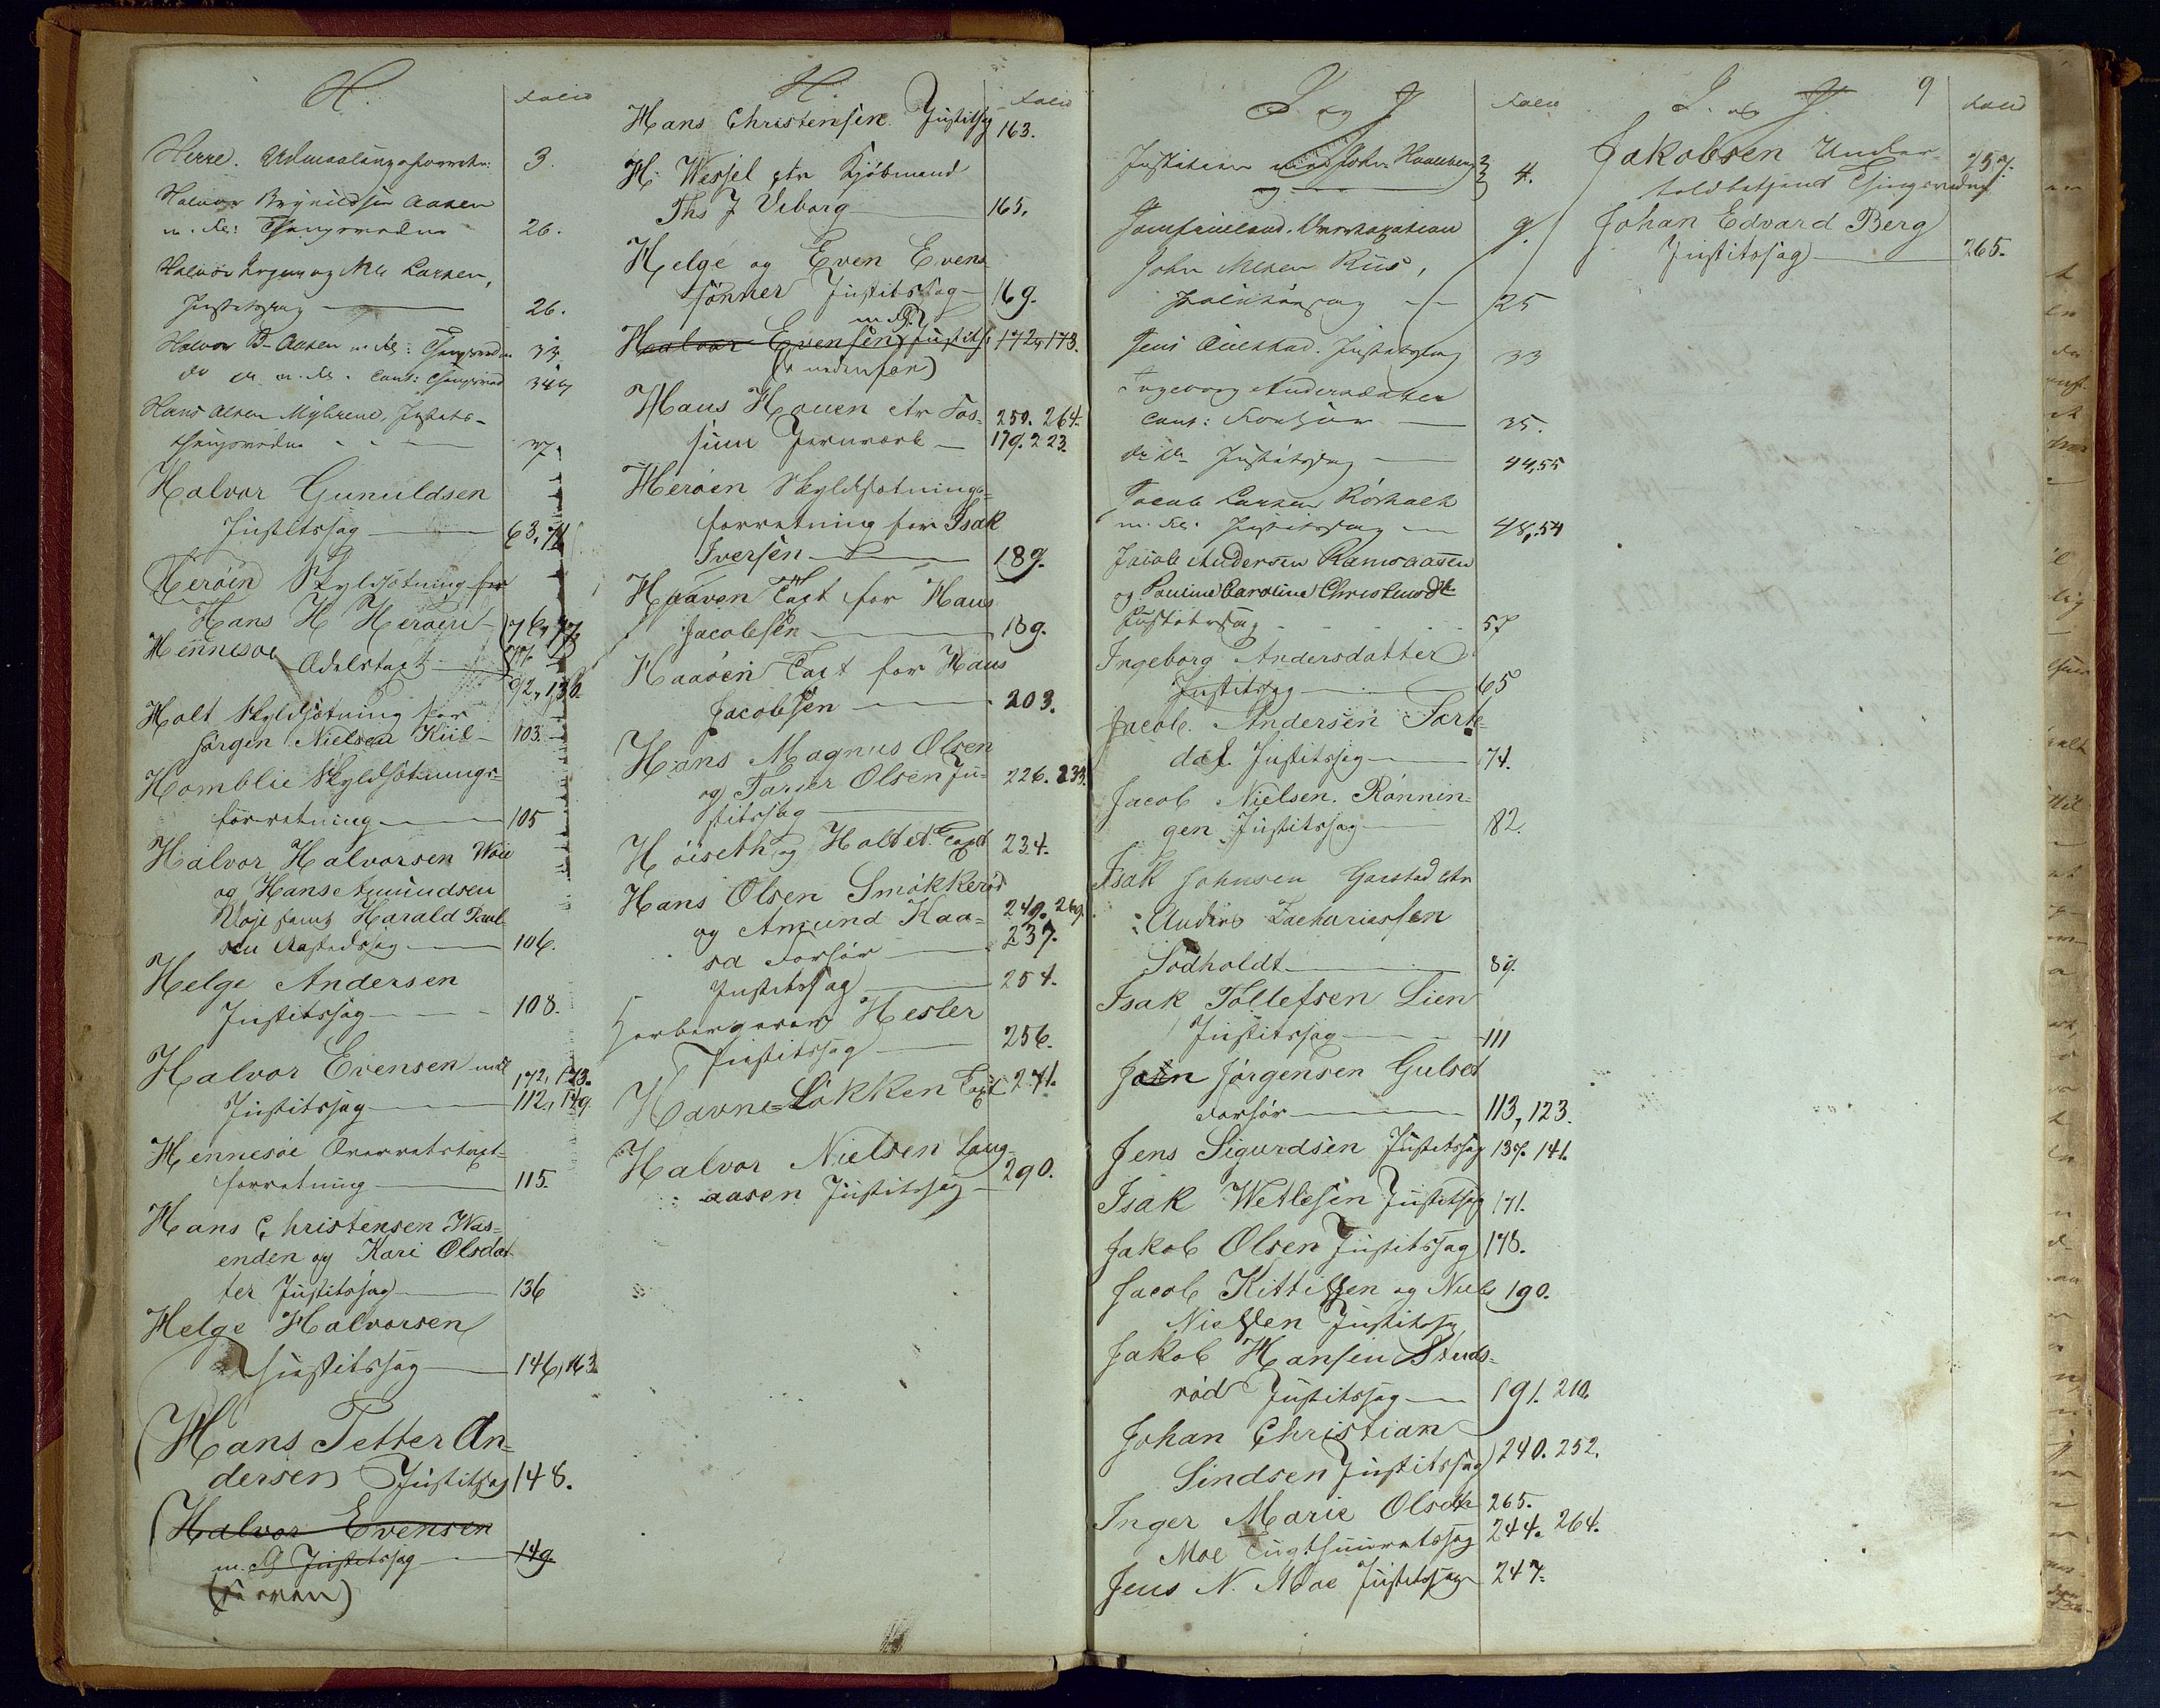 H.
Folio
Herre. Udmaalingsforretn: 3.
Halvor Brynildsen Aasen
m. fl: Thingsvidne 26.
Halvor Jrgens og Nils Larsen,
Justitssag 26.
Halvor B. Aasen m. fl: Thingsvidne 33
do do m. fl. Cont: Thingsvid 34
Hans Olsen Myhrene, Justits-
thingsvidne 37.
Halvor Gunuldsen
Justitssag 63, 71
Herøen Skyldsætning for
Hans H Herøen 76, 77
Hennesøe Odelstaxt
92, 136.
Holt Skyldsætning for
Jørgen Nielsen Kiil 103.
Homblie Skyldsætnings-
forretning 105
Halvor Halvorsen Woie
og Hans Amundsen
Woje samt Harald Paul
sen Aastedssag 106.
Helge Andersen
Justitssag 108.
Halvor Evensen m fl 172, 173.
Justitssag 112, 149.
Hennesøe Overretstaxt-
forretning 115.
Hans Christensen Was-
enden og Kari Olsdat
ter Justitssag 136
Helge Halvorsen
Justitssag 146, 163
Hans Petter An-
dersen Justitssag 148.
Halvor Evensen
m. fl Justitssag 149.
(se oven)
H.
Folio
Hans Christensen Justitssag 163.
H. Wessel ctr Kjøbmand
Ths J Viborg 165.
Helge og Even Evens-
sønner Justitssag 169.
m. fl.
Halvor Evensen Justits 172, 173.
(se nedenfor)
Hans Houen ctr Fos- 259. 264.
sum Jernværk 179. 223.
Herøen Skyldsætnings-
forretning for Isak
Iversen 189.
Haaven Taxt for Hans
Jacobsen 189.
Haaøen Taxt for Hans
Jacobsen 203.
Hans Magnus Olsen
og Tarjer Olsen Ju- 226. 233.
stitssag
Høiseth og Holtet Taxt 234.
Hans Olsen Smøkkerød 249. 269
og Amund Kaa- 237.
sa Forhør
Justitssag 254.
Herbergerer Hesler
Justitssag 256.
Havne-Løkken Taxt 271.
Halvor Nielsen Laug-
aasen Justitssag 290.
I og J
Folio
4.
Jomfruland. Overtaxation 9.
John Nilsen Riis,
Politiesag 25
Jens Justitssag 33
Ingeborg Andersdatter
Cont: Forhør 35.
do do Justitssag 44, 55
Jacob Larsen Rørholt
m. fl. Justitssag 48, 54
Jacob Andersen Ramsaasen
og Pauline Caroline Christensdtr
Justitssag 57
Ingeborg Andersdatter
Justitssag 65
Jacob Andersen Farte-
dal. Justitssag 74.
Jacob Nielsen. Rønnin-
gen Justitssag 82.
Isak Johnsen Gaastad ctr
Anders Zachariassen
Sødholdt 89.
Isak Tollefsen Lien
Justitssag 111
John Jørgensen Gulset
Forhør 113, 123.
Jens Sigurdsen Justitssag 137. 141.
Isak Wetlesen Justitssag 171.
Jakob Olsen Justitssag 178.
Jacob Kittilsen og Niels 190.
Nielsen Justitssag
Jakob Hansen Studs-
rød Justitssag 191. 210.
Johan Christian
Lindsen Justitssag 240. 252.
Inger Marie Olsdtr 265.
Moe Justitssag 244. 264.
Jens N. Moe Justitssag 247.
I. og J.
9
Folio
Jakobsen Under-
toldbetjent Thingsvidne 257.
Johan Edvard Berg
Justitssag 265.